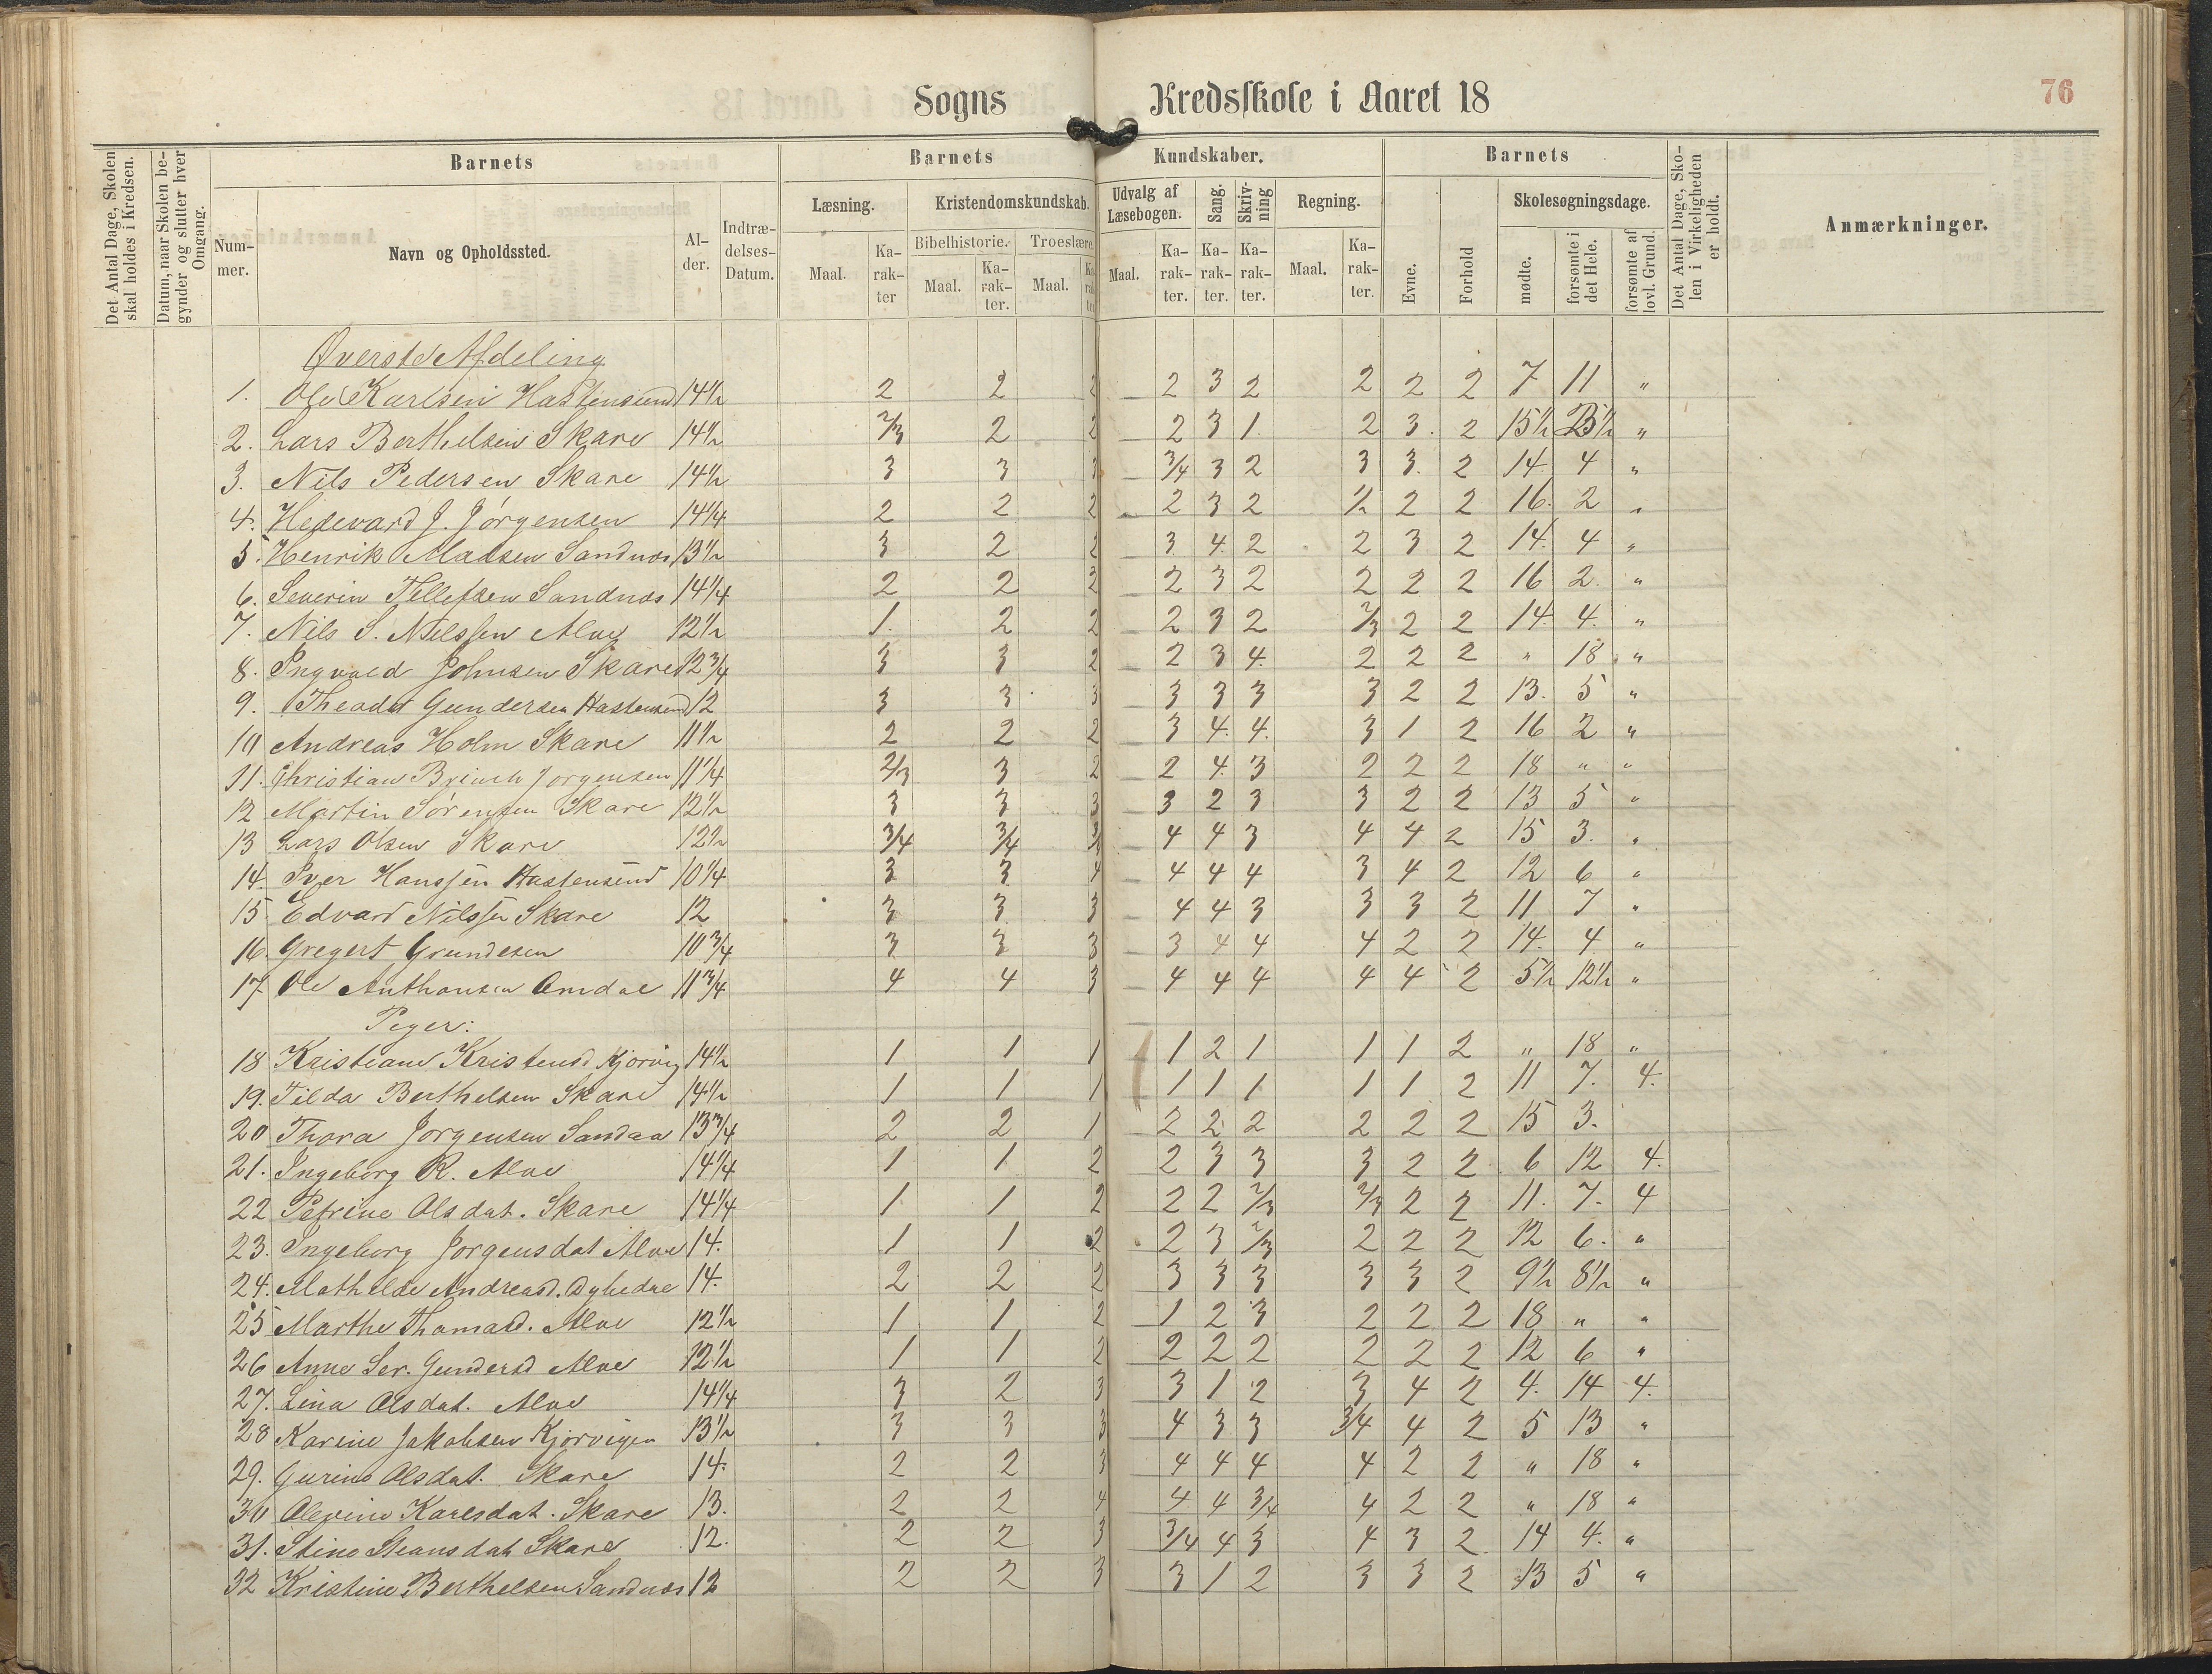 Sogns Kredsskole i Aaret 18
76
Det Antal Dage, Skolen skal holdes i Kredsen.
Datum, naar Skolen begynder og slutter hver Omgang.
Barnets
Nummer.
Navn og Opholdssted.
Alder.
Indtrædelses-Datum.
Barnets Kundskaber.
Læsning.
Maal.
Karakter
Kristendomskundskab.
Bibelhistorie.
Maal.
Karakter.
Troeslære.
Maal.
Karakter
Udvalg af Læsebogen.
Maal.
Karakter.
Sang.
Karakter.
Skrivning
Karakter.
Regning.
Maal.
Karakter.
Barnets
Evne.
Forhold
Skolesøgningsdage.
mødte.
forsømte i det Hele.
forsømte af lovl. Grund.
Det Antal Dage, Skolen i Virkeligheden er holdt.
Anmærkninger.
Øverste Afdeling
1. Ole Karlsen Hastensund 14½ 2 2 2 2 3 2 2 2 2 7 11 "
2. Lars Berthelsen Skare 14½ 2/3 2 2 2 3 1. 2 3. 2 15½ "
3. Nils Pedersen Skare 14½ 3 3 3 3/4 3 2 3 3. 2 14. 4 "
4. Hedevard J. Jørgensen 14¼ 2 2 2 2 3 2 ½ 2 2 16. 2 "
5. Henrik Madsen Sandnes 13½ 3 2 2 3 4. 2 2 3 2 14. 4 "
6. Severin Tellefsen Sandnes 14¼ 2 2 2 2 3 2 2 2 2 16 2. "
7. Nils S. Nielssen Alve 12½ 1. 2 2 2 3 2 2/3 2 2 14. 4. "
8. Ingvald Johnsen Skare 12¾ 3 3 2 2 3 4. 2 2 2 " 18 "
9. Theodor Gundersen Hastensund 12 3 3 3 3 3 3 3 2 2 13. 5 "
10 Andreas Holm Skare 11½ 2 2 2 3 4. 4. 3 1 2 16 2 "
11. Christian Brinch Jorgensen 11¼ 2/3 3 2 2 4. 3 2 2 2 18 " "
12 Martin Sørensen Skare 12½ 3 3 3 3 2 3 3 2 2 13 5 "
13 Lars Olsen Skare 12½ 3/4 3/4 3 4 4 3 4 4 2 15 3. "
14. Iver Hanssen Hastensund 10¼ 3 3 4 4 4 4 3 4 2 12 6 "
15 Edvard Nilssen Skare 12 3 3 3 4 4 3 3 3 2 11 7 "
16. Gregert Grundesen 10¾ 3 3 3 3 4 4 4 2 2 14. 4 "
17. Ole Anthonsen Omdal 11¾ 4 4 3 4 4 4 4 4 2 5½ 12½ "
Piger:
18 Kristiane Kristensd. Kjørvig 14½ 1 1 1 1 2 1 1 1 2 " 18 "
19. Tilda Berthelsen Skare 14½ 1 1 1 1 1 1 1 1 2 11 7. 4.
20 Thora Jorgensen Sandaa 13¾ 2 2 1 2 2 2 2 2 2 15 3.
21. Ingeborg R. Alve 14¼ 1 1 2 2 3 3 3 2 2 6 12 4.
22 Petrine Olsdat. Skare 14¼ 1 1 2 2 2 2/3 2/3 2 2 11. 7. 4
23. Ingeborg Jorgensdat Alve 14. 1 1 2 2 3 2/3 2 2 2 12 6. "
24. Mathilde Andreasd. Dybedal 14. 2 2 2 3 3 3 3 3 2 9½ 8½ "
25 Marthe Thomasd. Alve 12½ 1 1 2 1 2 3 2 2 2 18 " "
26 Anne Ser. Gundersd Alve 12½ 1 1 2 2 2 2 2 2 2 12 6 "
27. Lina Olsdat. Alve 14¼ 3 2 3 3 1 2 3 4 2 4. 14 4.
28 Karine Jakobsen Kjørvigen 13½ 3 3 3 4 3 3 3/4 4 2 5 13 "
29. Gurine Olsdat. Skare 14. 2 2 3 4 4 4 4 2 2 " 18 "
30 Olevine Karlsdat. Skare 13. 2 2 4 4 4 3/4 4 2 2 " 18 "
31. Stine Steansdat Skare 12. 2 2 3 3/4 4 3 4 3 2 14 4. "
32 Kristine Berthelsen Sandnes 12 2 2 3 3 1 2 3 3 2 13 5 "